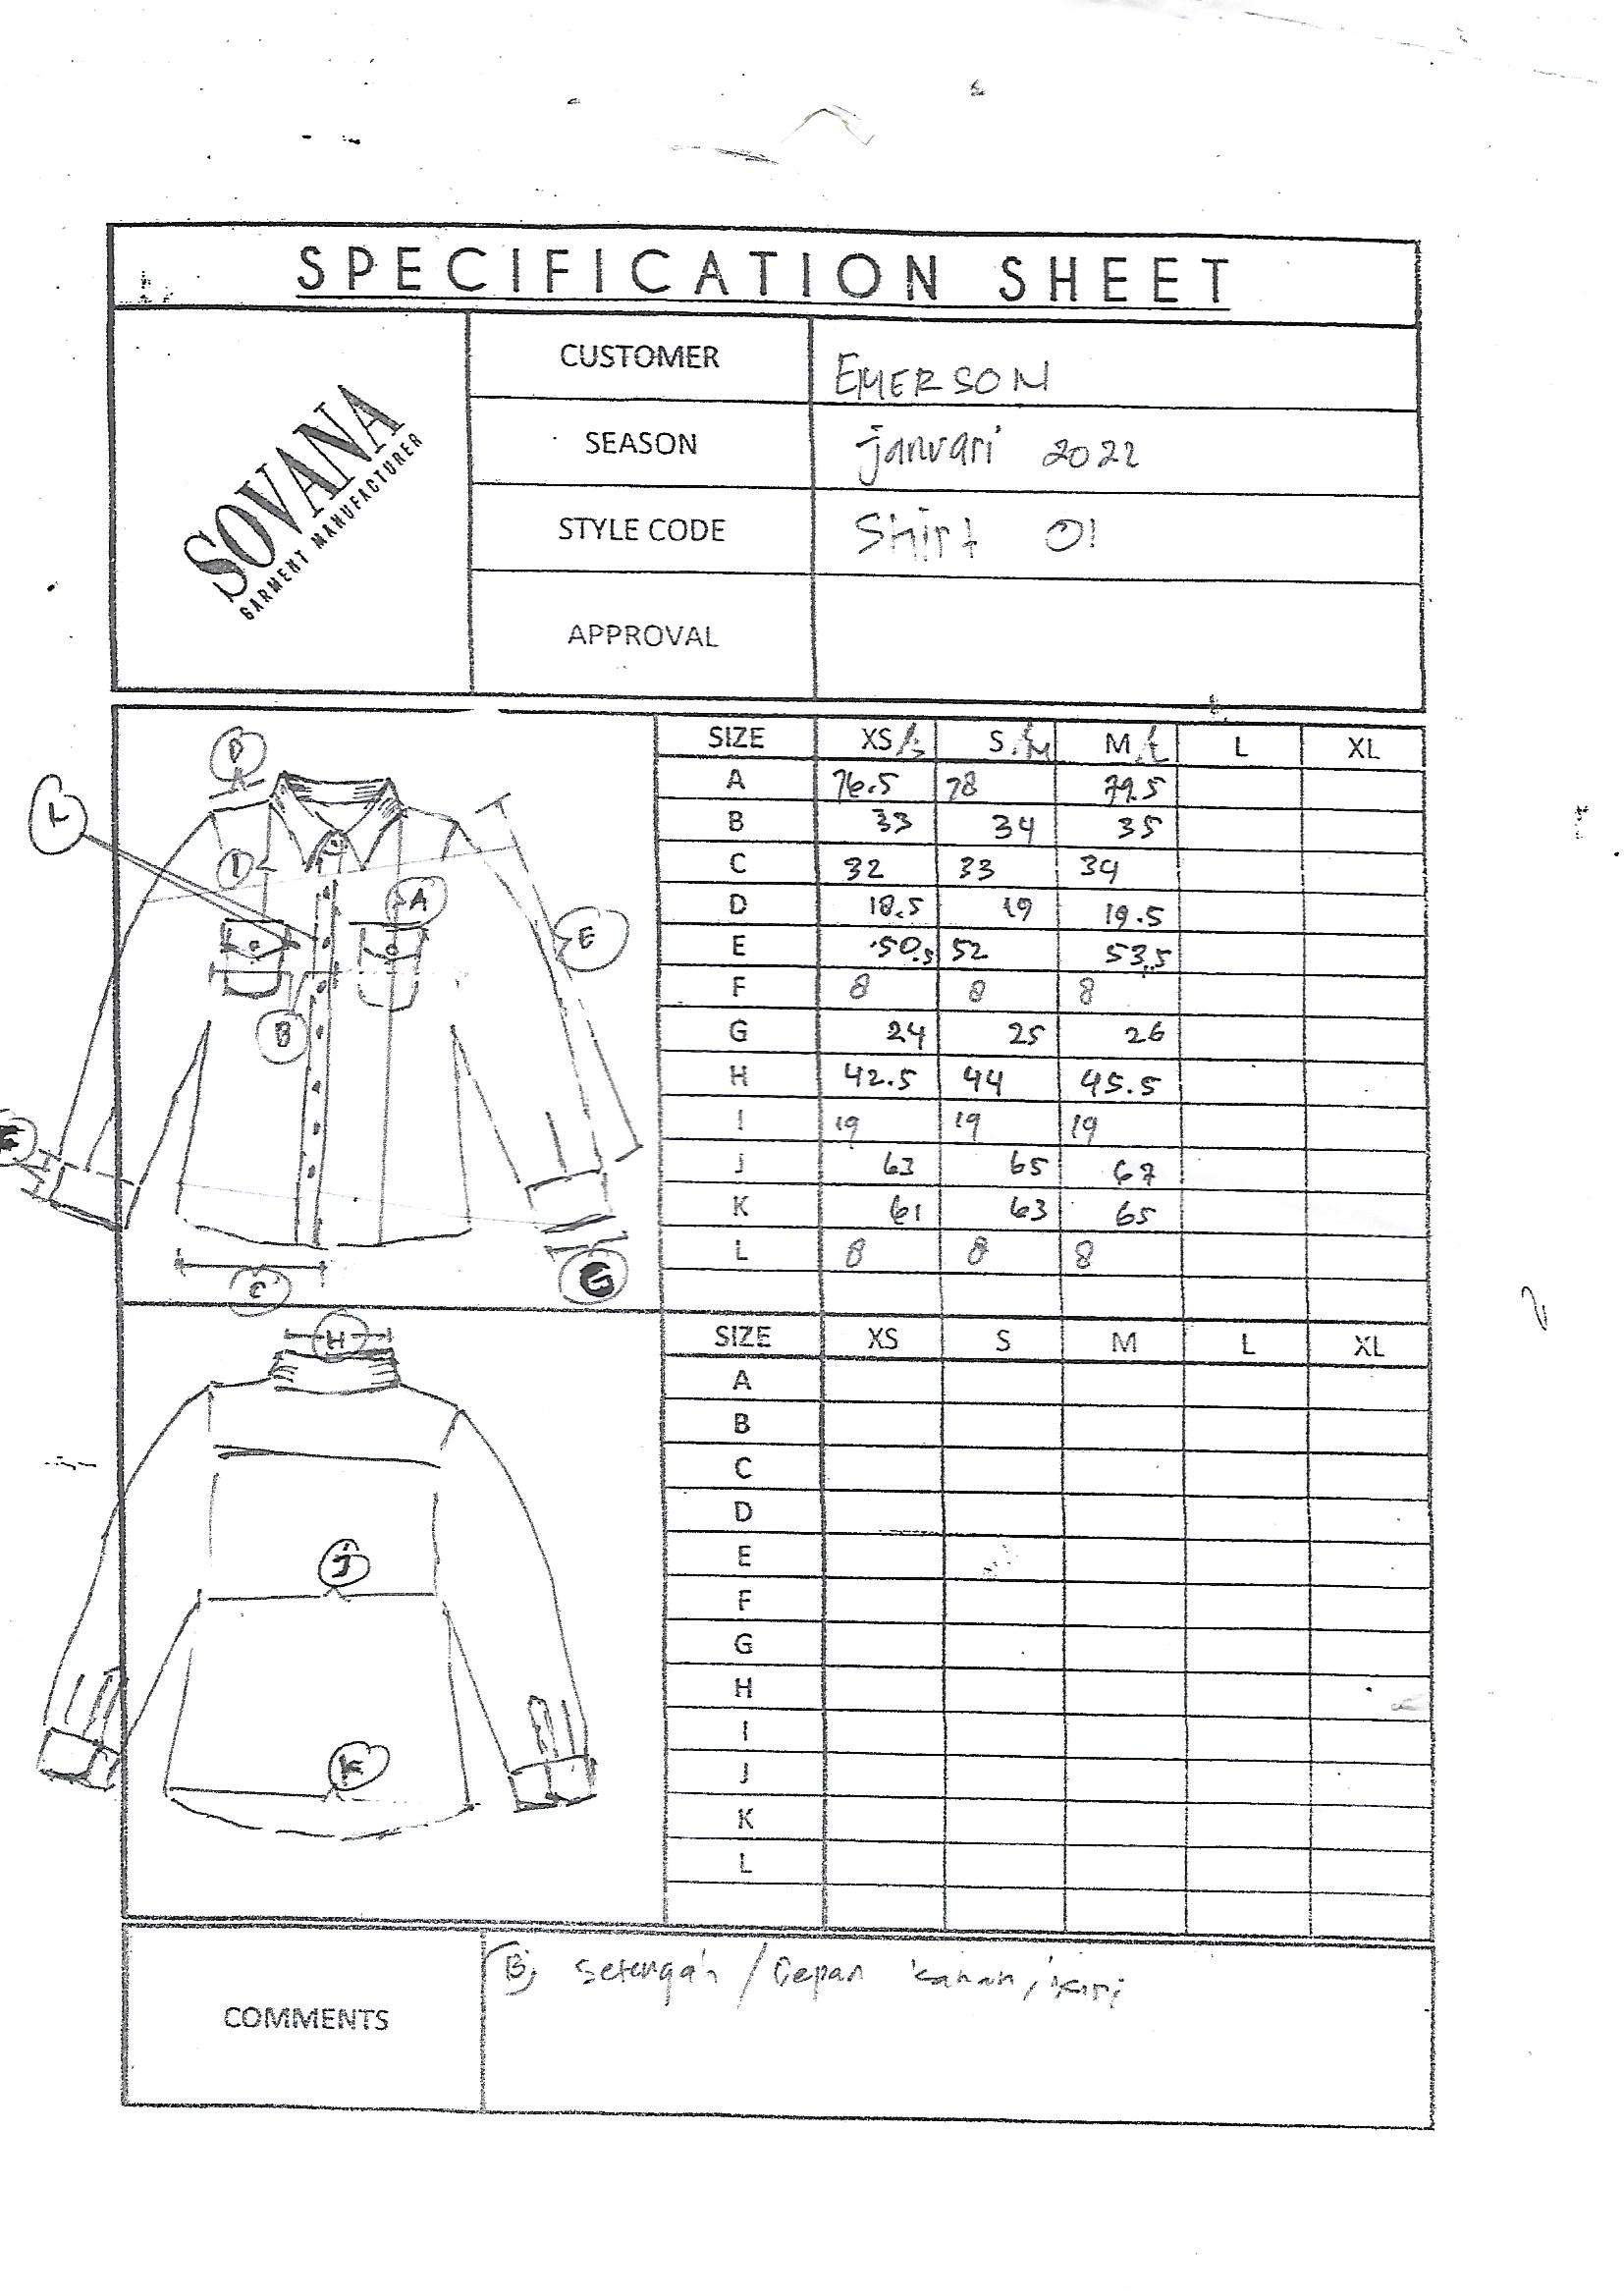 SPECIFICATION SHEET
SOVANA
GARMENT MANUFACTURER
CUSTOMER EMERSON
SEASON januari 2022
STYLE CODE Shirt 01
APPROVAL
SIZE XS/S S/M M/L L XL
A 76.5 78 79.5
B 33 34 35
C 32 33 34
D 18.5 19 19.5
E 50.5 52 53.5
F 8 8 8
G 24 25 26
H 42.5 44 45.5
I 19 19 19
J 63 65 67
K 61 63 65
L 8 8 8
D
L
D
A
E
B
F
C
G
H
J
K
SIZE XS S M L XL
A
B
C
D
E
F
G
H
I
J
K
L
COMMENTS
B, setengah / Depan kanan, kiri